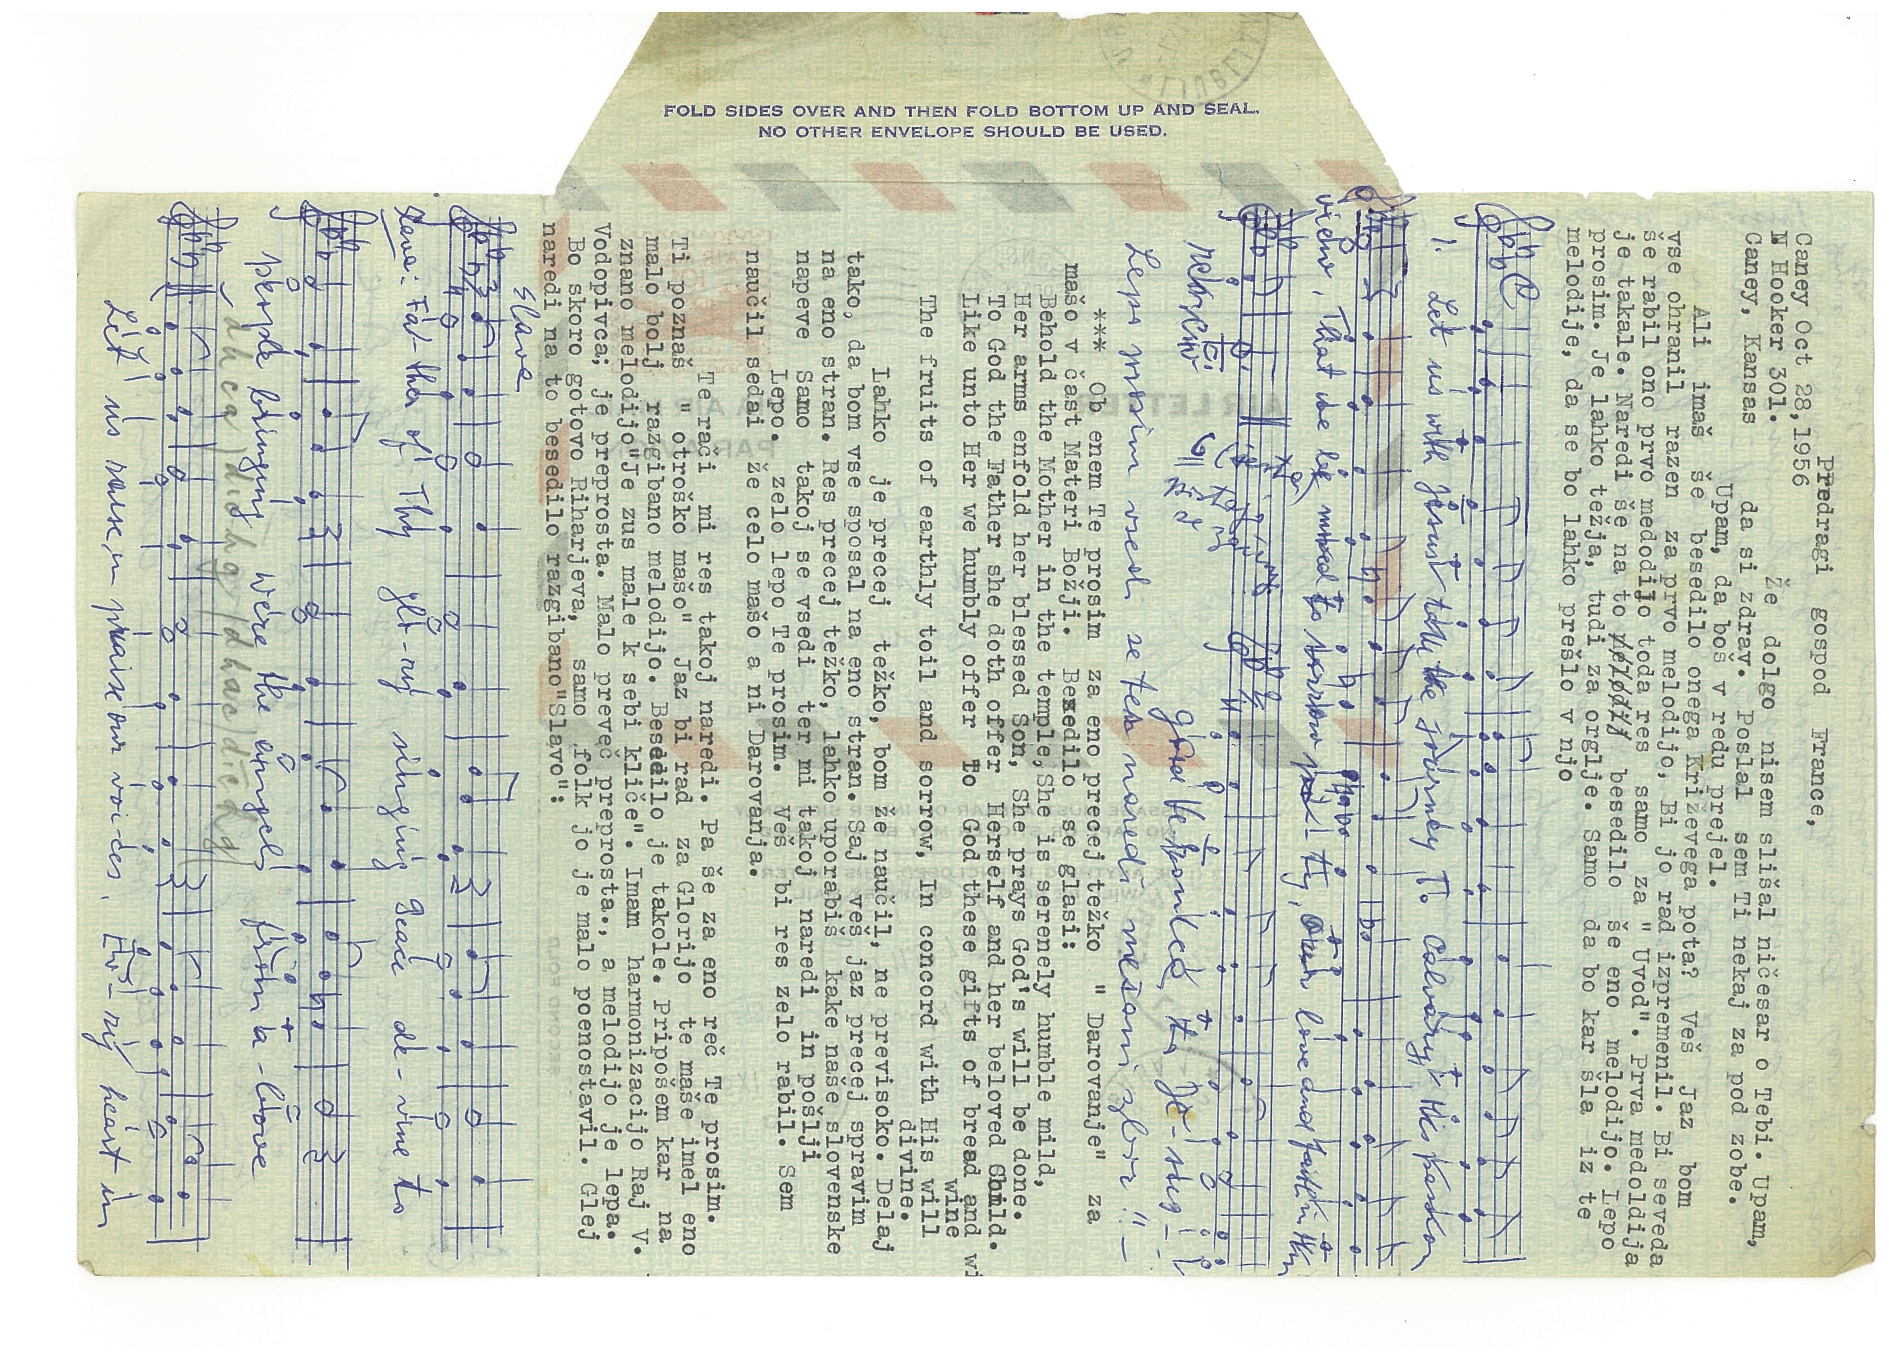 FOLD SIDES OVER AND THEN FOLD BOTTOM UP AND SEAL.
NO OTHER ENVELOPE SHOULD BE USED.
Predragi gospod France,
Caney Oct 28,1956
N Hooker 301.
Caney, Kansas
Že dolgo nisem slišal ničesar o Tebi. Upam,
da si zdrav. Poslal sem Ti nekaj za pod zobe.
Upam, da boš v redu prejel.
Ali imaš še besedilo onega Križevega pota? Veš Jaz bom
vse ohranil razen za prvo melodijo, Bi jo rad izpremenil. Bi seveda
še rabil ono prvo medodijo toda res samo za " Uvod". Prva medoldija
je takale. Naredi še na to besedilo še eno melodijo. Lepo
prosim. Je lahko težja, tudi za orglje. Samo da bo kar šla iz te
melodije, da se bo lahko prešlo v njo
1. Let us with Jesus take the journey To Calvary His passion
view, That we be moved to sorrow Thy, Our love and faith in Him
grant
Lepo prosim vsedi se tam naredi mešani zbor!!-
*** Ob enem Te prosim za eno precej težko " Darovanje" za
mašo v čast Materi Božji. Besedilo se glasi:
Behold the Mother in the temple, She is serenely humble mild,
Her arms enfold her blessed Son, She prays God's will be done.
To God the Father she doth offer Herself and her beloved Child.
Like unto Her we humbly offer To God these gifts of bread and wi
wine
The fruits of earthly toil and sorrow, In concord with His will
divine.
Lahko je precej težko, bom že naučil, ne previsoko. Delaj
tako, da bom vse sposal na eno stran. Saj veš jaz precej spravim
na eno stran. Res precej težko, lahko uporabiš kake naše slovenske
napeve Samo takoj se vsedi ter mi takoj naredi in pošlji
Lepo. zelo lepo Te prosim. Veš bi res zelo rabil. Sem
naučil sedaj že celo mašo a ni Darovanja.
Te rači mi res takoj naredi. Pa še za eno reč Te prosim.
Ti poznaš " otroško mašo" Jaz bi rad za Glorijo te maše imel eno
malo bolj razgibano melodijo. Besedilo je takole. Pripošem kar na
znano melodijo"Je zus male k sebi kliče". Imam harmonizacijo Raj V.
Vodopivca; je preprosta. Malo preveč preprosta., a melodijo je lepa.
Bo skoro gotovo Riharjeva, samo folk jo je malo poenostavil. Glej
naredi na to besedilo razgibano"Slavo":
Slava
Slava: Fa-ther of Thy glo-ry singing Peace de-vine to
people bringing were the angels from a-bove
Let us raise in praise our voi-ces, Ev'-ry heart in